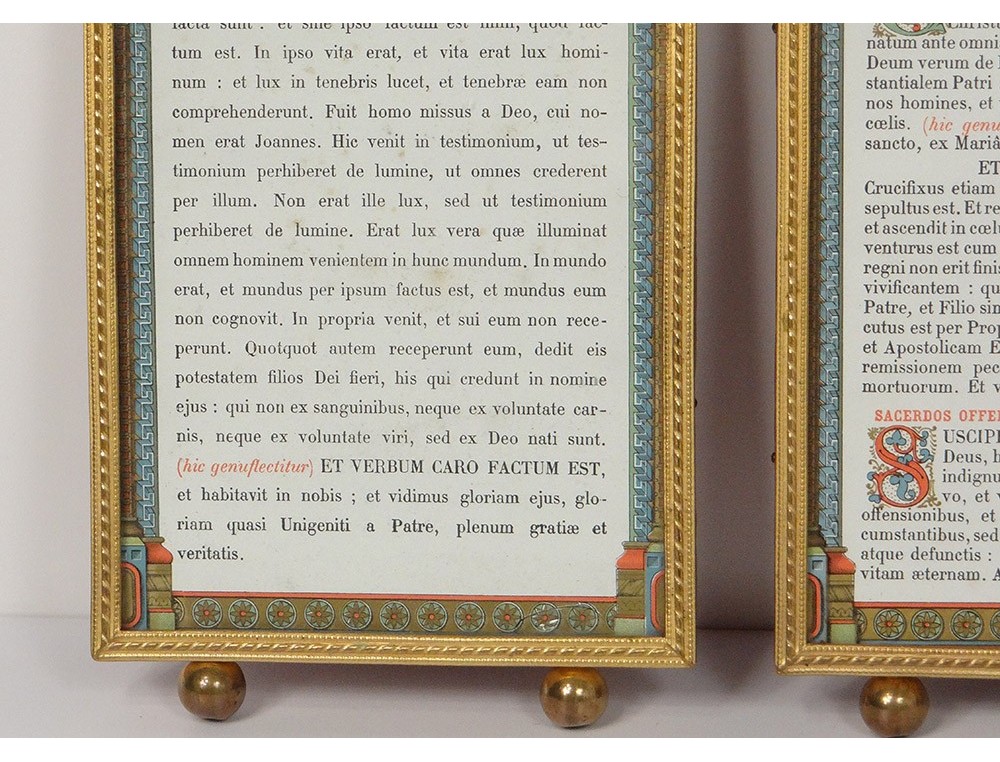 facta sunt : et sine ipso factum est nihil, quod fac-
tum est. In ipso vita erat, et vita erat lux homi-
num : et lux in tenebris lucet, et tenebræ eam non
comprehenderunt. Fuit homo missus a Deo, cui no-
men erat Joannes. Hic venit in testimonium, ut tes-
timonium perhiberet de lumine, ut omnes crederent
per illum. Non erat ille lux, sed ut testimonium
perhiberet de lumine. Erat lux vera quæ illuminat
omnem hominem venientem in hunc mundum. In mundo
erat, et mundus per ipsum factus est, et mundus eum
non cognovit. In propria venit, et sui eum non rece-
perunt. Quotquot autem receperunt eum, dedit eis
potestatem filios Dei fieri, his qui credunt in nomine
ejus : qui non ex sanguinibus, neque ex voluntate car-
nis, neque ex voluntate viri, sed ex Deo nati sunt.
(hic genuflectitur) ET VERBUM CARO FACTUM EST,
et habitavit in nobis ; et vidimus gloriam ejus, glo-
riam quasi Unigeniti a Patre, plenum gratiæ et
veritatis.
natum ante omni
Deum verum de
stantialem Patri
nos homines, et
cœlis. (hic genu
sancto, ex Mariâ
ET
Crucifixus etiam
sepultus est. Et re
et ascendit in cœl
venturus est cum
regni non erit finis
vivificantem : qu
Patre, et Filio sim
cutus est per Prop
et Apostolicam E
remissionem pec
mortuorum. Et v
SACERDOS OFFE
SUSCIPE
Deus, h
indignu
vo, et v
offensionibus, et
cumstantibus, sed
atque defunctis :
vitam æternam. A